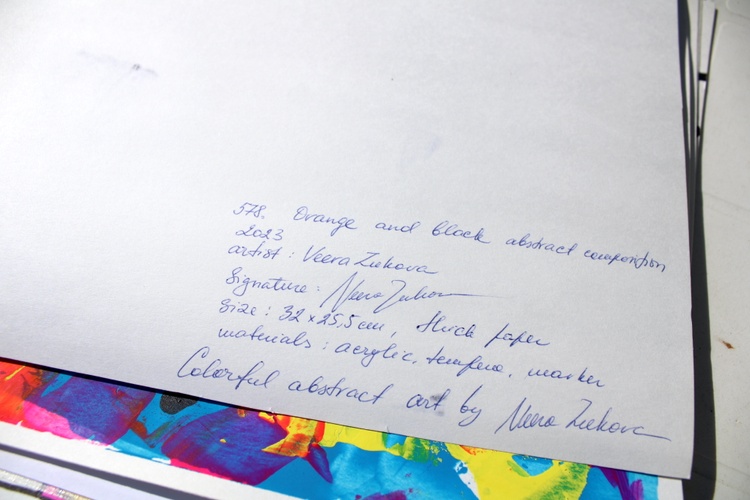 578. Orange and black abstract composition
2023
artist: Veera Zukova
Signature: Veera Zukova
Size: 32 x 25,5 cm, thick paper
materials: acrylic, tempera, marker
Colorful abstract art by Veera Zukova